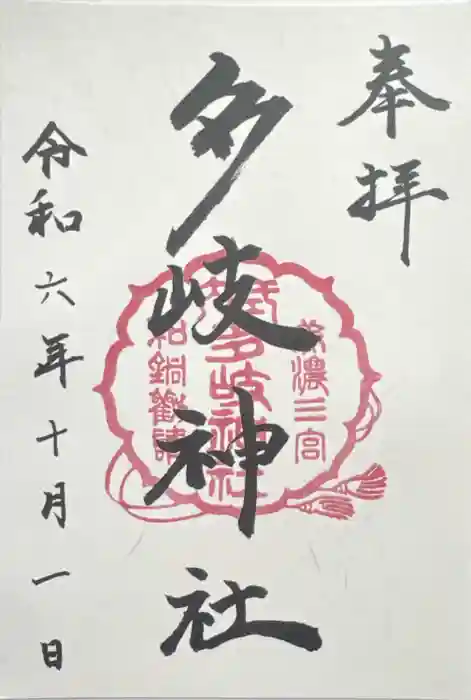 奉拝
美濃三宮
式内多岐神社
和銅勧請
多岐神社
令和六年十月一日